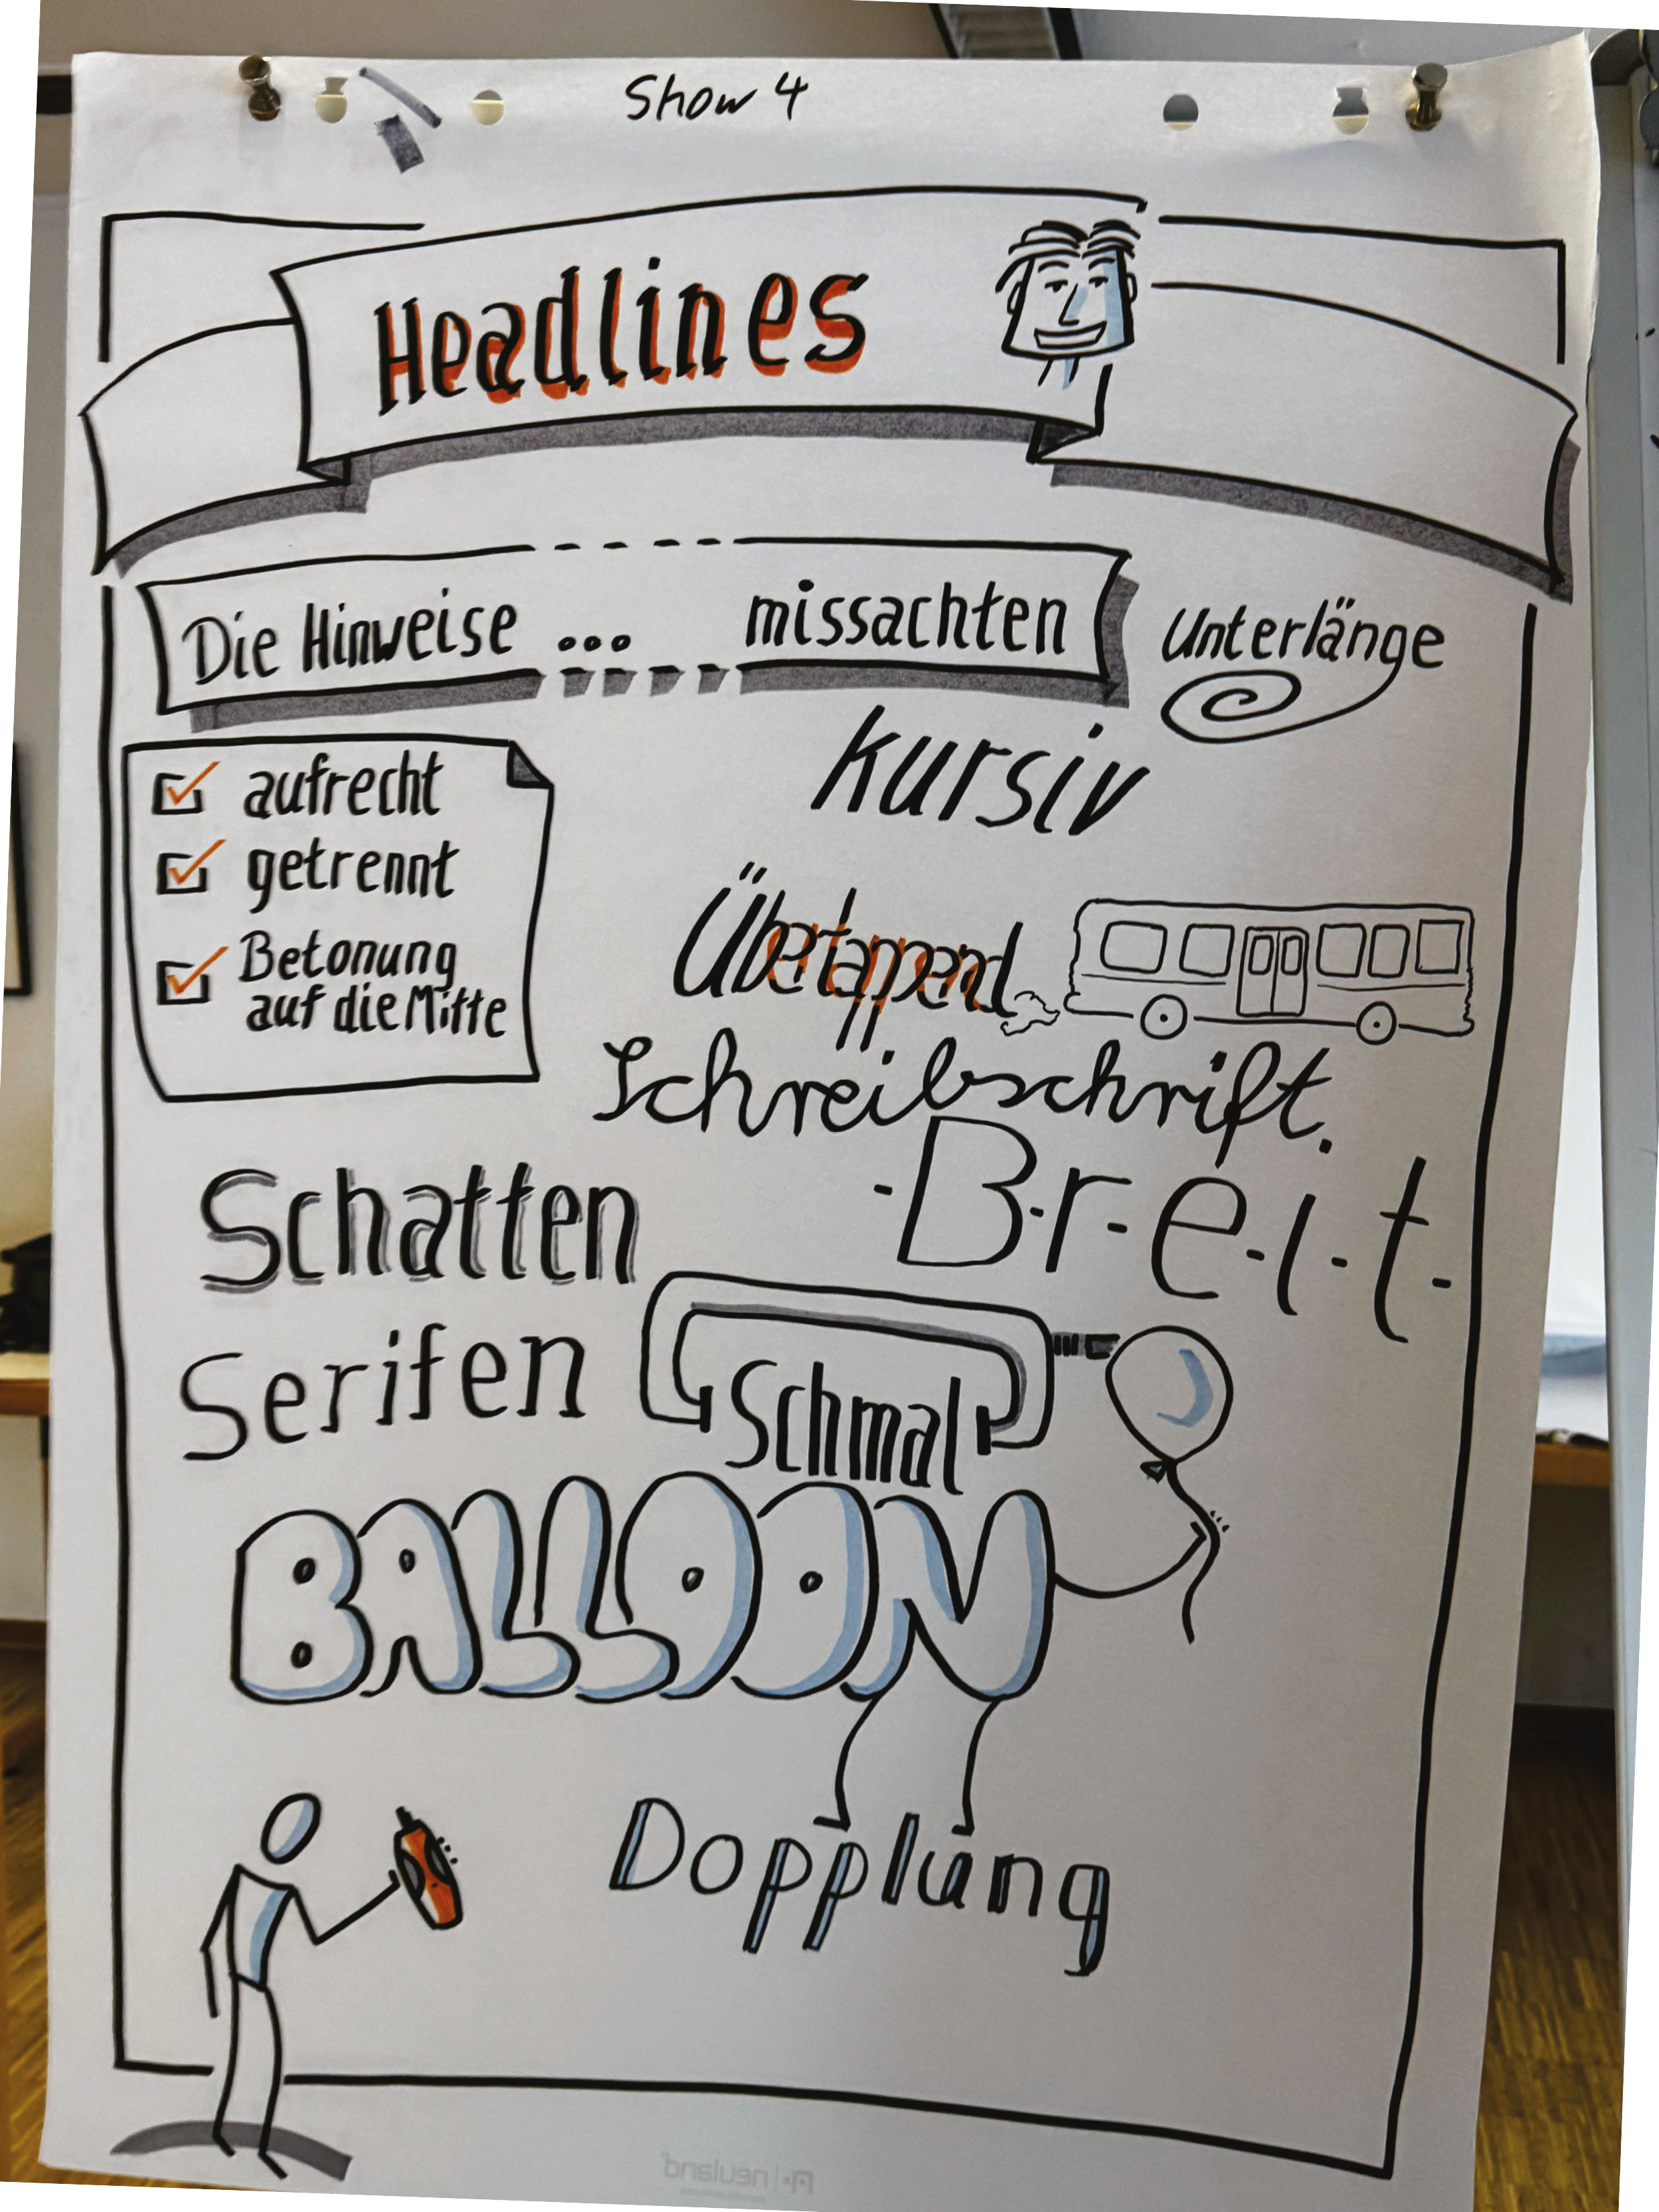 Show 4
Headlines
Die Hinweise ... missachten
Unterlänge
aufrecht
getrennt
Betonung
auf die Mitte
kursiv
Überlappend
Schreibschrift.
-B-r-e-i-t-
Schatten
Serifen
Schmal
BALLOON
Dopplung
neuland